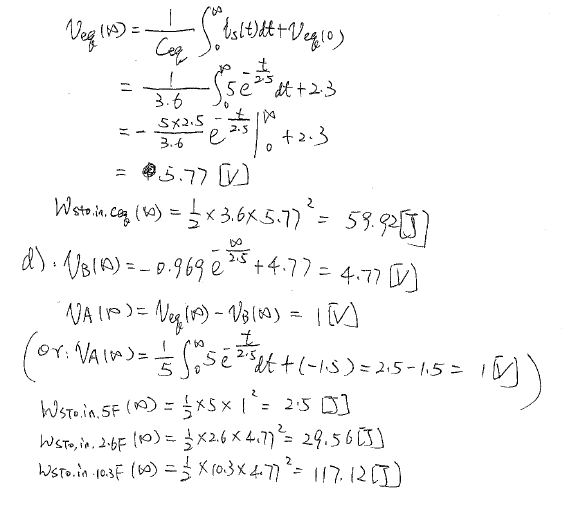 Veq(∞) = 1/Ceq ∫₀^∞ is(t)dt + Veq(0)
= 1/3.6 ∫₀^∞ 5e^(-t/2.5) dt + 2.3
= - 5×2.5/3.6 e^(-t/2.5) |₀^∞ + 2.3
= 5.77 [V]
Wsto.in.ceq(∞) = 1/2 × 3.6 × 5.77² = 59.92 [J]
d). VB(∞) = -0.969 e^(-∞/2.5) + 4.77 = 4.77 [V]
VA(∞) = Veq(∞) - VB(∞) = 1 [V]
(or: VA(∞) = 1/5 ∫₀^∞ 5e^(-t/2.5) dt + (-1.5) = 2.5 - 1.5 = 1 [V])
Wsto.in.5F(∞) = 1/2 × 5 × 1² = 2.5 [J]
Wsto.in.2.6F(∞) = 1/2 × 2.6 × 4.77² = 29.56 [J]
Wsto.in.10.3F(∞) = 1/2 × 10.3 × 4.77² = 117.12 [J]